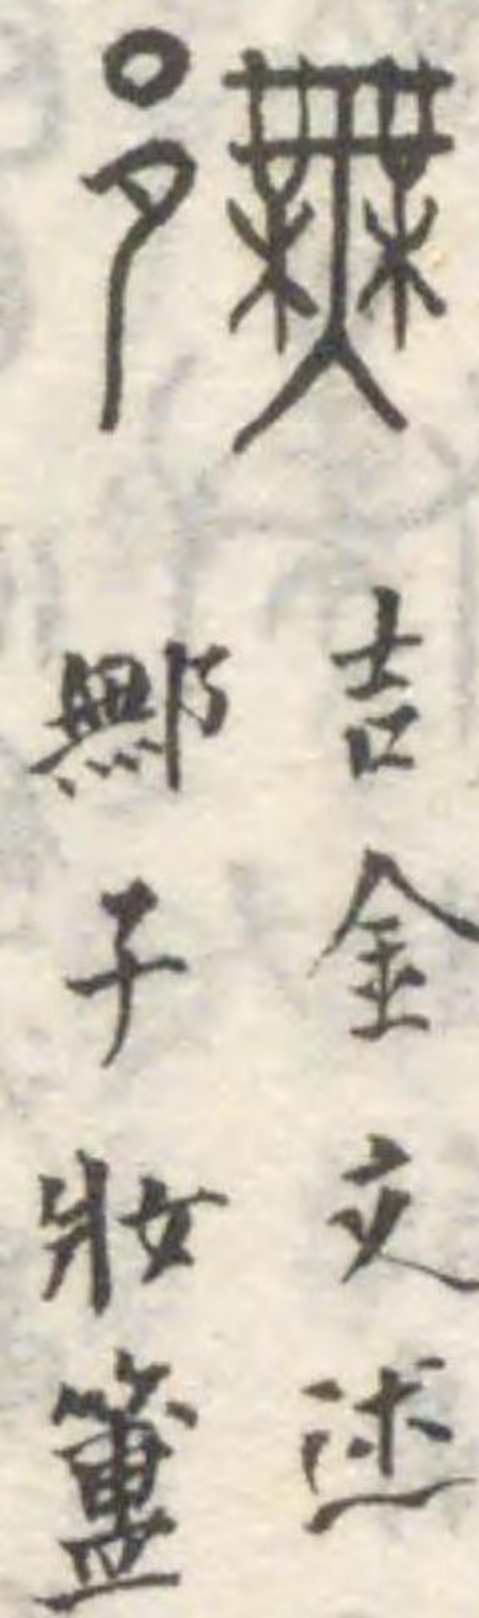 鄦
吉金文述
鄦子妝簠